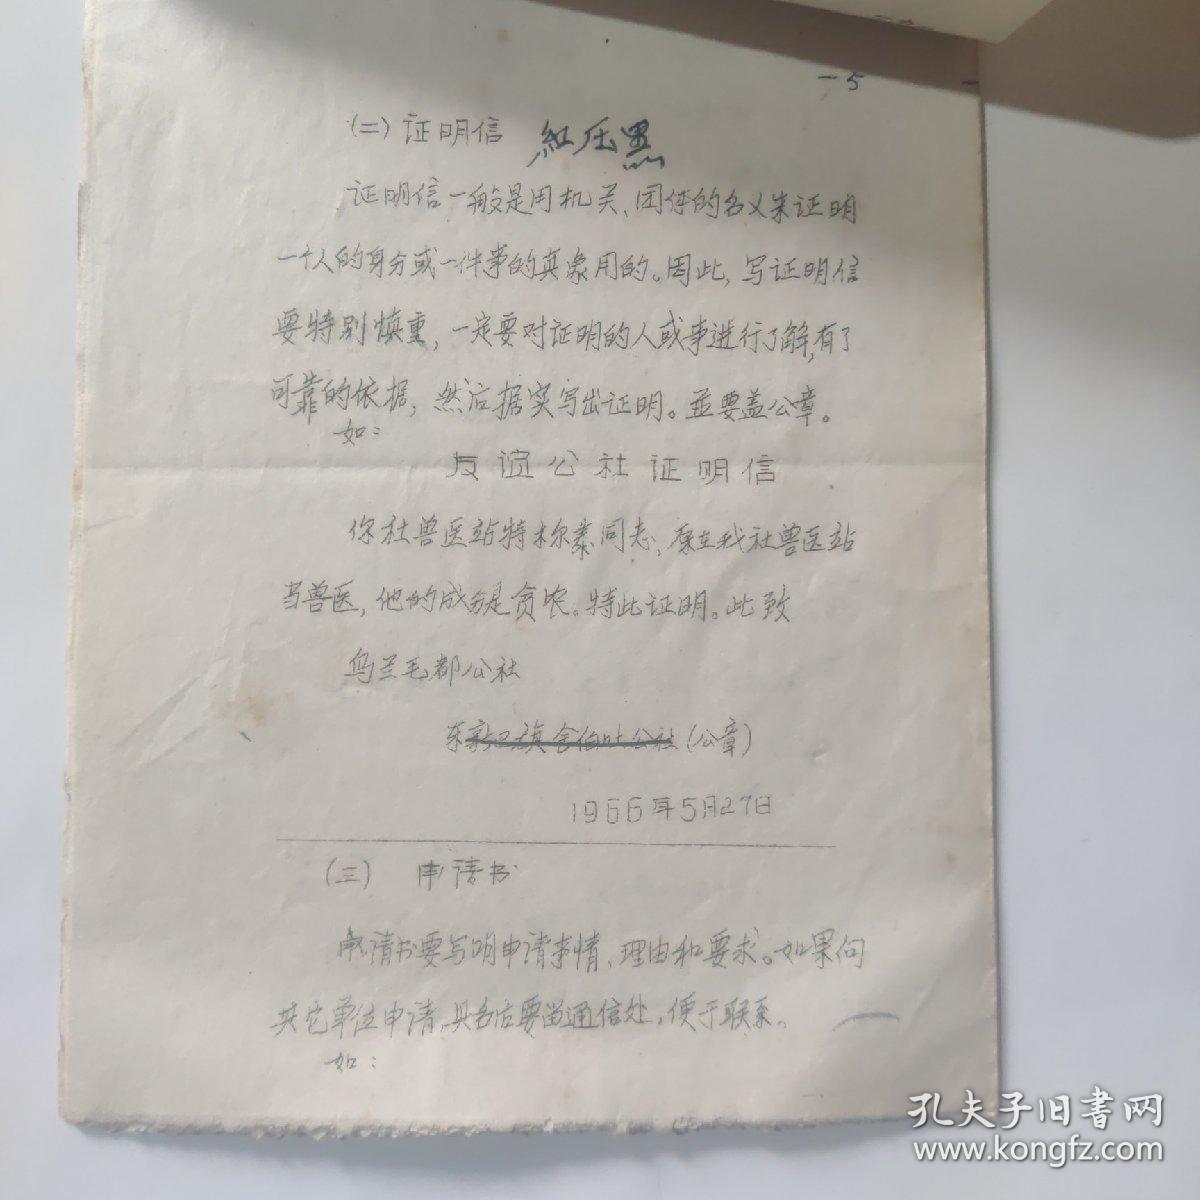 —5
(二)证明信 紅压黑
证明信一般是用机关、团体的名义来证明
一个人的身分或一件事的真象用的。因此,写证明信
要特别慎重,一定要对证明的人或事进行了解,有了
可靠的依据,然后据实写出证明。並要盖公章。
如:
友谊公社证明信
你社兽医站特木尔泰同志,原在我社兽医站
当兽医,他的成分是贫农。特此证明。此致
乌兰毛都公社
公社(公章)
1966年5月27日
(三) 申请书
申请书要写明申请事情、理由和要求。如果向
其它单位申请,具名后要留通信处,便于联系。
如:
孔夫子旧書网
www.kongfz.com